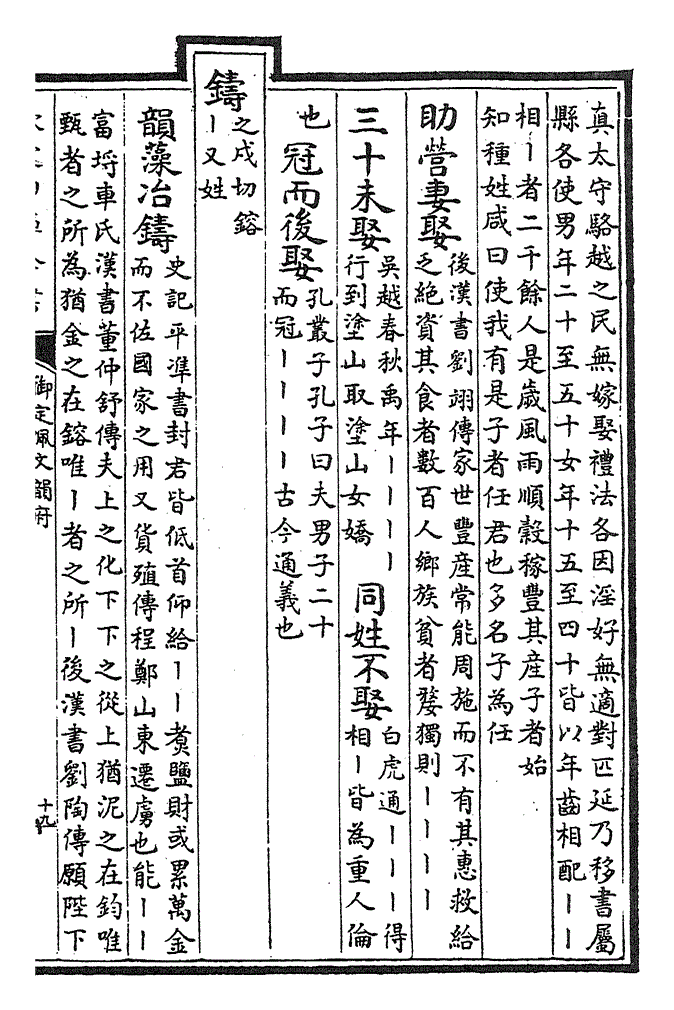 真太守駱越之民無嫁娶禮法各因淫好無適對匹延乃移書屬
縣各使男年二十至五十女年十五至四十皆以年齒相配｜｜
相｜者二千餘人是歲風雨順穀稼豐其産子者始
知種姓咸曰使我有是子者任君也多名子為任
助營妻娶
後漢書劉翊傳家世豐産常能周施而不有其惠救給
乏絶資其食者數百人鄉族貧者嫠獨則｜｜｜｜
三十未娶
吳越春秋禹年｜｜｜｜
行到塗山取塗山女嬌
同姓不娶
白虎通｜｜｜得
相｜皆為重人倫
也
冠而後娶
孔叢子孔子曰夫男子二十
而冠｜｜｜｜古今通義也
鑄
之戍切鎔
｜又姓
韻藻冶鑄
史記平準書封君皆低首仰給｜｜煑鹽財或累萬金
而不佐國家之用又貨殖傳程鄭山東遷虜也能｜｜
富埒車氏漢書董仲舒傳夫上之化下下之從上猶泥之在鈞唯
甄者之所為猶金之在鎔唯｜者之所｜後漢書劉陶傳願陛下
御定佩文韻府